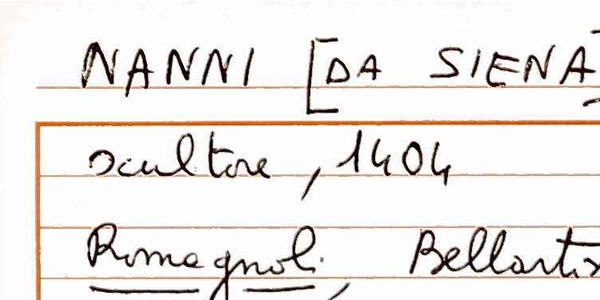 NANNI [DA SIENA]
scultore, 1404
Romagnoli, Bellartis